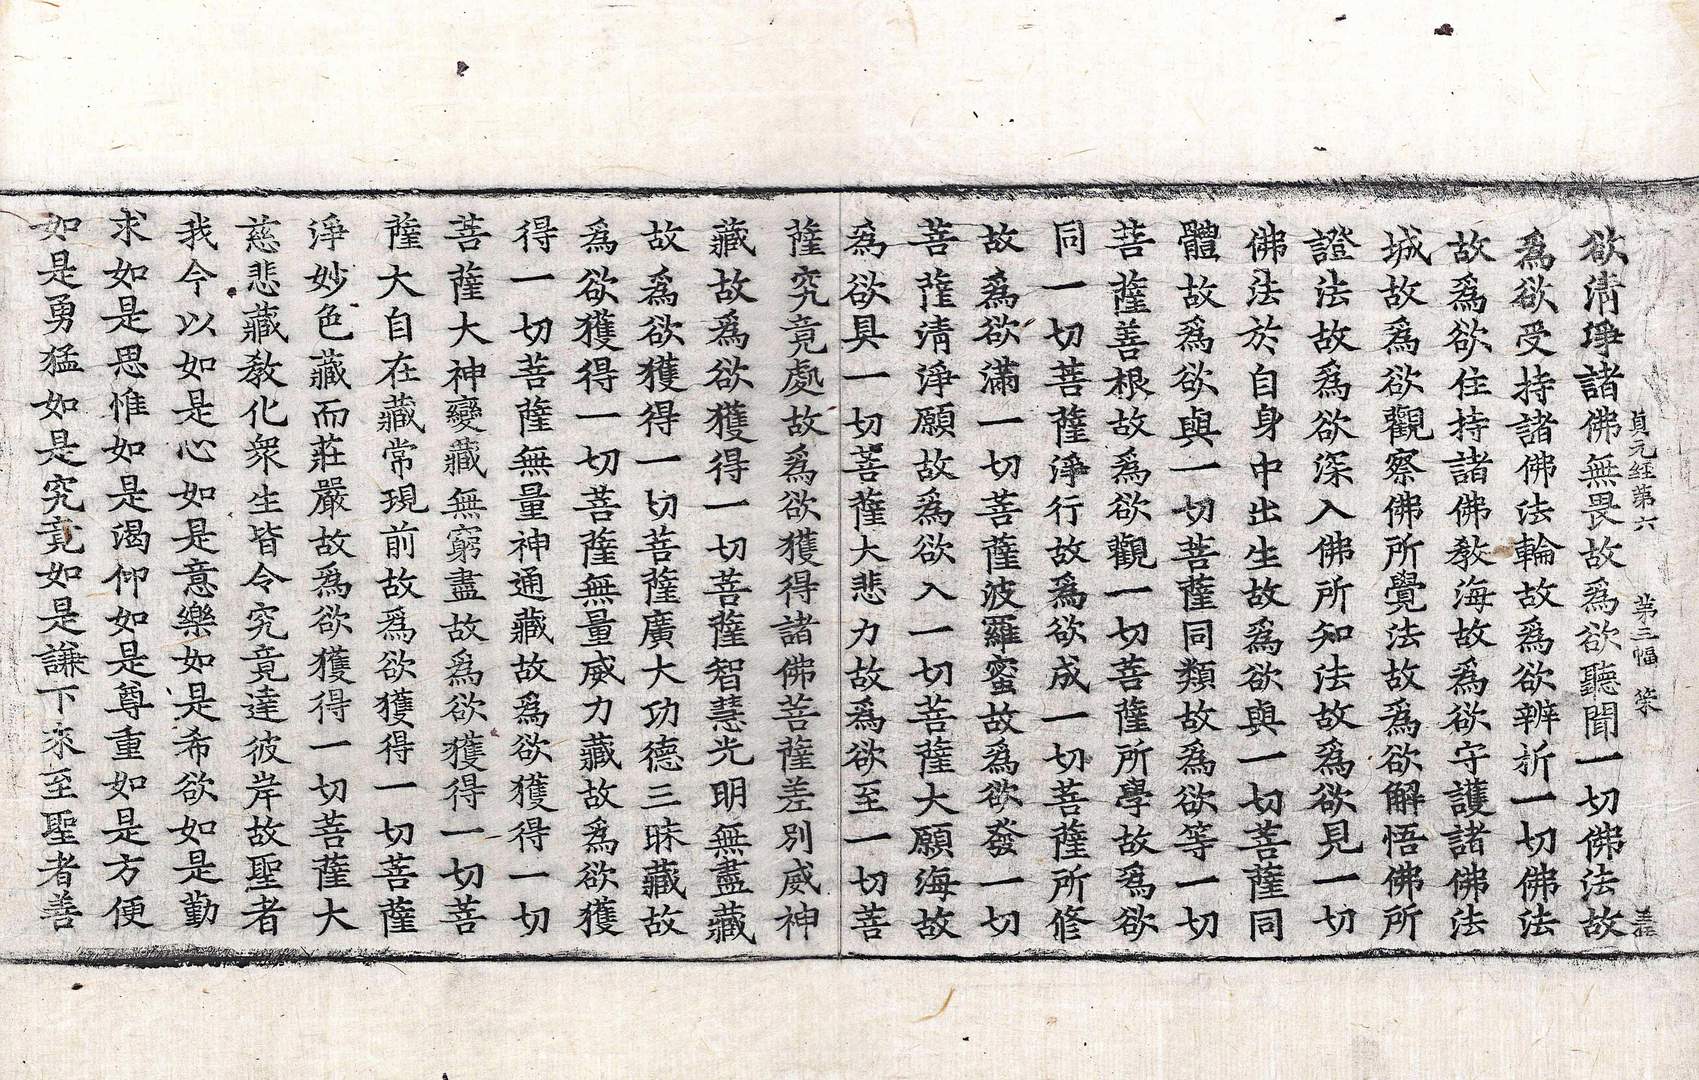 貞元經第六 第三幅 
欲清淨諸佛無畏故爲欲聽聞一切佛法故
爲欲受持諸佛法輪故爲欲辨折一切佛法
故爲欲住持諸佛教海故爲欲守護諸佛法
城故爲欲觀察佛所覺法故爲欲解悟佛所
證法故爲欲深入佛所知法故爲欲見一切
佛法於自身中出生故爲欲與一切菩薩同
體故爲欲與一切菩薩同類故爲欲等一切
菩薩善根故爲欲觀一切菩薩所學故爲欲
同一切菩薩淨行故爲欲成一切菩薩所修
故爲欲滿一切菩薩波羅蜜故爲欲發一切
菩薩清淨願故爲欲入一切菩薩大願海故
爲欲具一切菩薩大悲力故爲欲至一切菩
薩究竟處故爲欲獲得諸佛菩薩差別威神
藏故爲欲獲得一切菩薩智慧光明無盡藏
故爲欲獲得一切菩薩廣大功德三昧藏故
爲欲獲得一切菩薩無量威力藏故爲欲獲
得一切菩薩無量神通藏故爲欲獲得一切
菩薩大神變藏無窮盡故爲欲獲得一切菩
薩大自在藏常現前故爲欲獲得一切菩薩
淨妙色藏而莊嚴故爲欲獲得一切菩薩大
慈悲藏教化衆生皆令究竟達彼岸故聖者
我今以如是心如是意樂如是希欲如是勤
求如是思惟如是渴仰如是尊重如是方便
如是勇猛如是究竟如是謙下來至聖者善